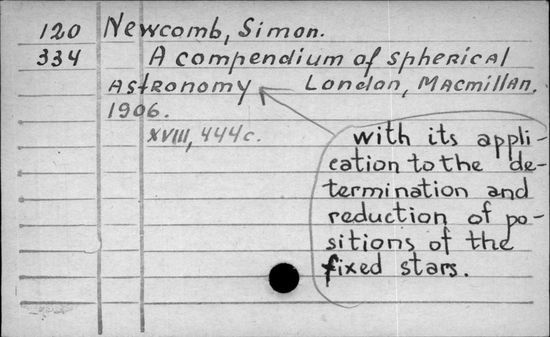 120 Newcomb, Simon.
334 A compendium of spherical
astronomy London, Macmillan,
1906.
XVIII, 444c.
with its appli-
cation to the de-
termination and
reduction of po-
sitions of the
fixed stars.